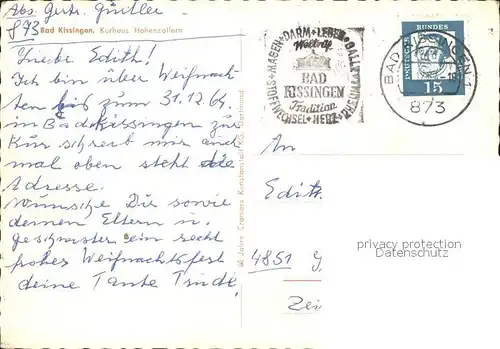 Abs. Gertr. Gürtler
873 Bad Kissingen, Kurhaus Hohenzollern
Liebe Edith!
Ich bin über Weihnach-
ten bis zum 31.12.64.
in Badekissingen zur
Kur schreib mir auch
mal oben steht die
Adresse.
wünsche Dir sowie
deinen Eltern u.
geschwister ein recht
frohes Weihnachtsfest
deine Tante Trude!
60 Jahre Cramers Kunstanstalt KG. Dortmund
MAGEN • DARM • LEBER • GALLE
RHEUMA • HERZ • STOFFWECHSEL
Weltruf
BAD
KISSINGEN
Tradition
BAD KISSINGEN 1
873
BUNDES
15
An
Edith
4851
Zei
privacy protection
Datenschutz